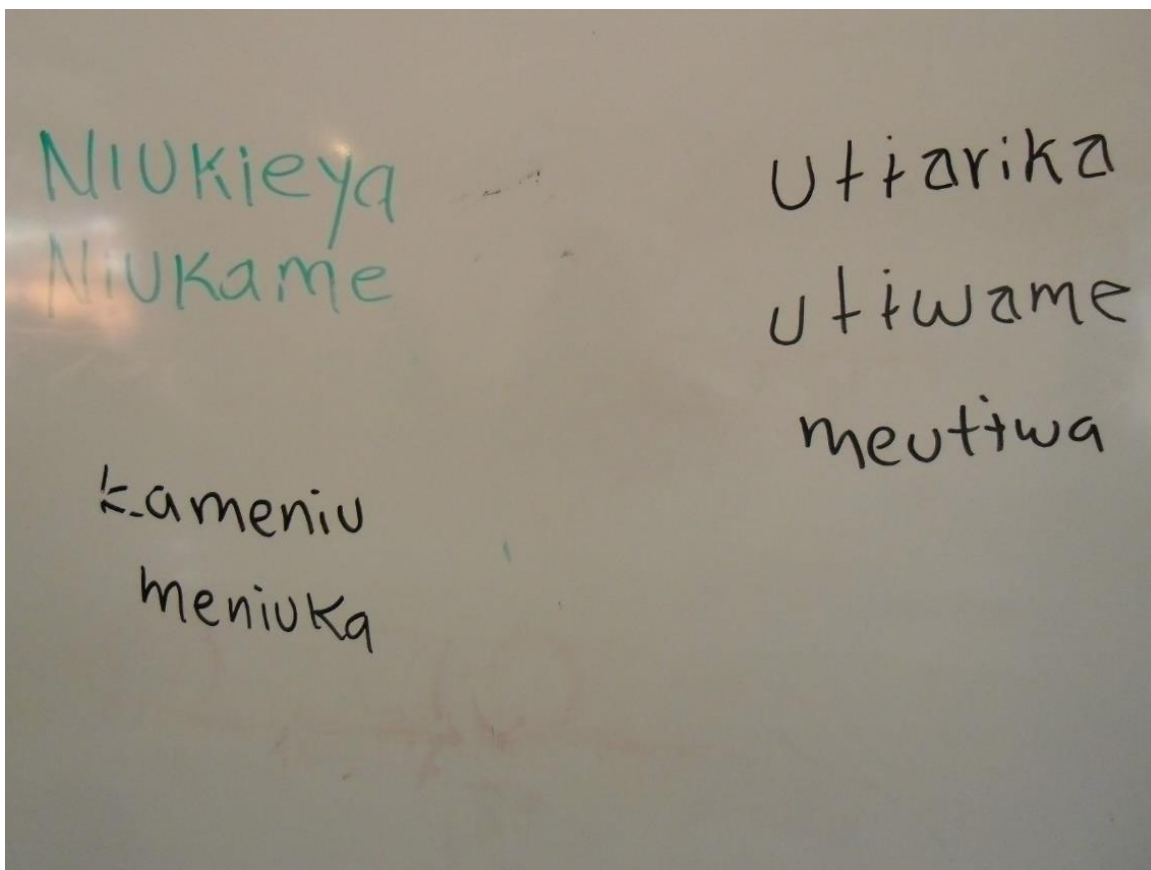 NIUKieya
NiUKame
kameniu
meniuKa
Utɨarika
utɨwame
meutɨwa